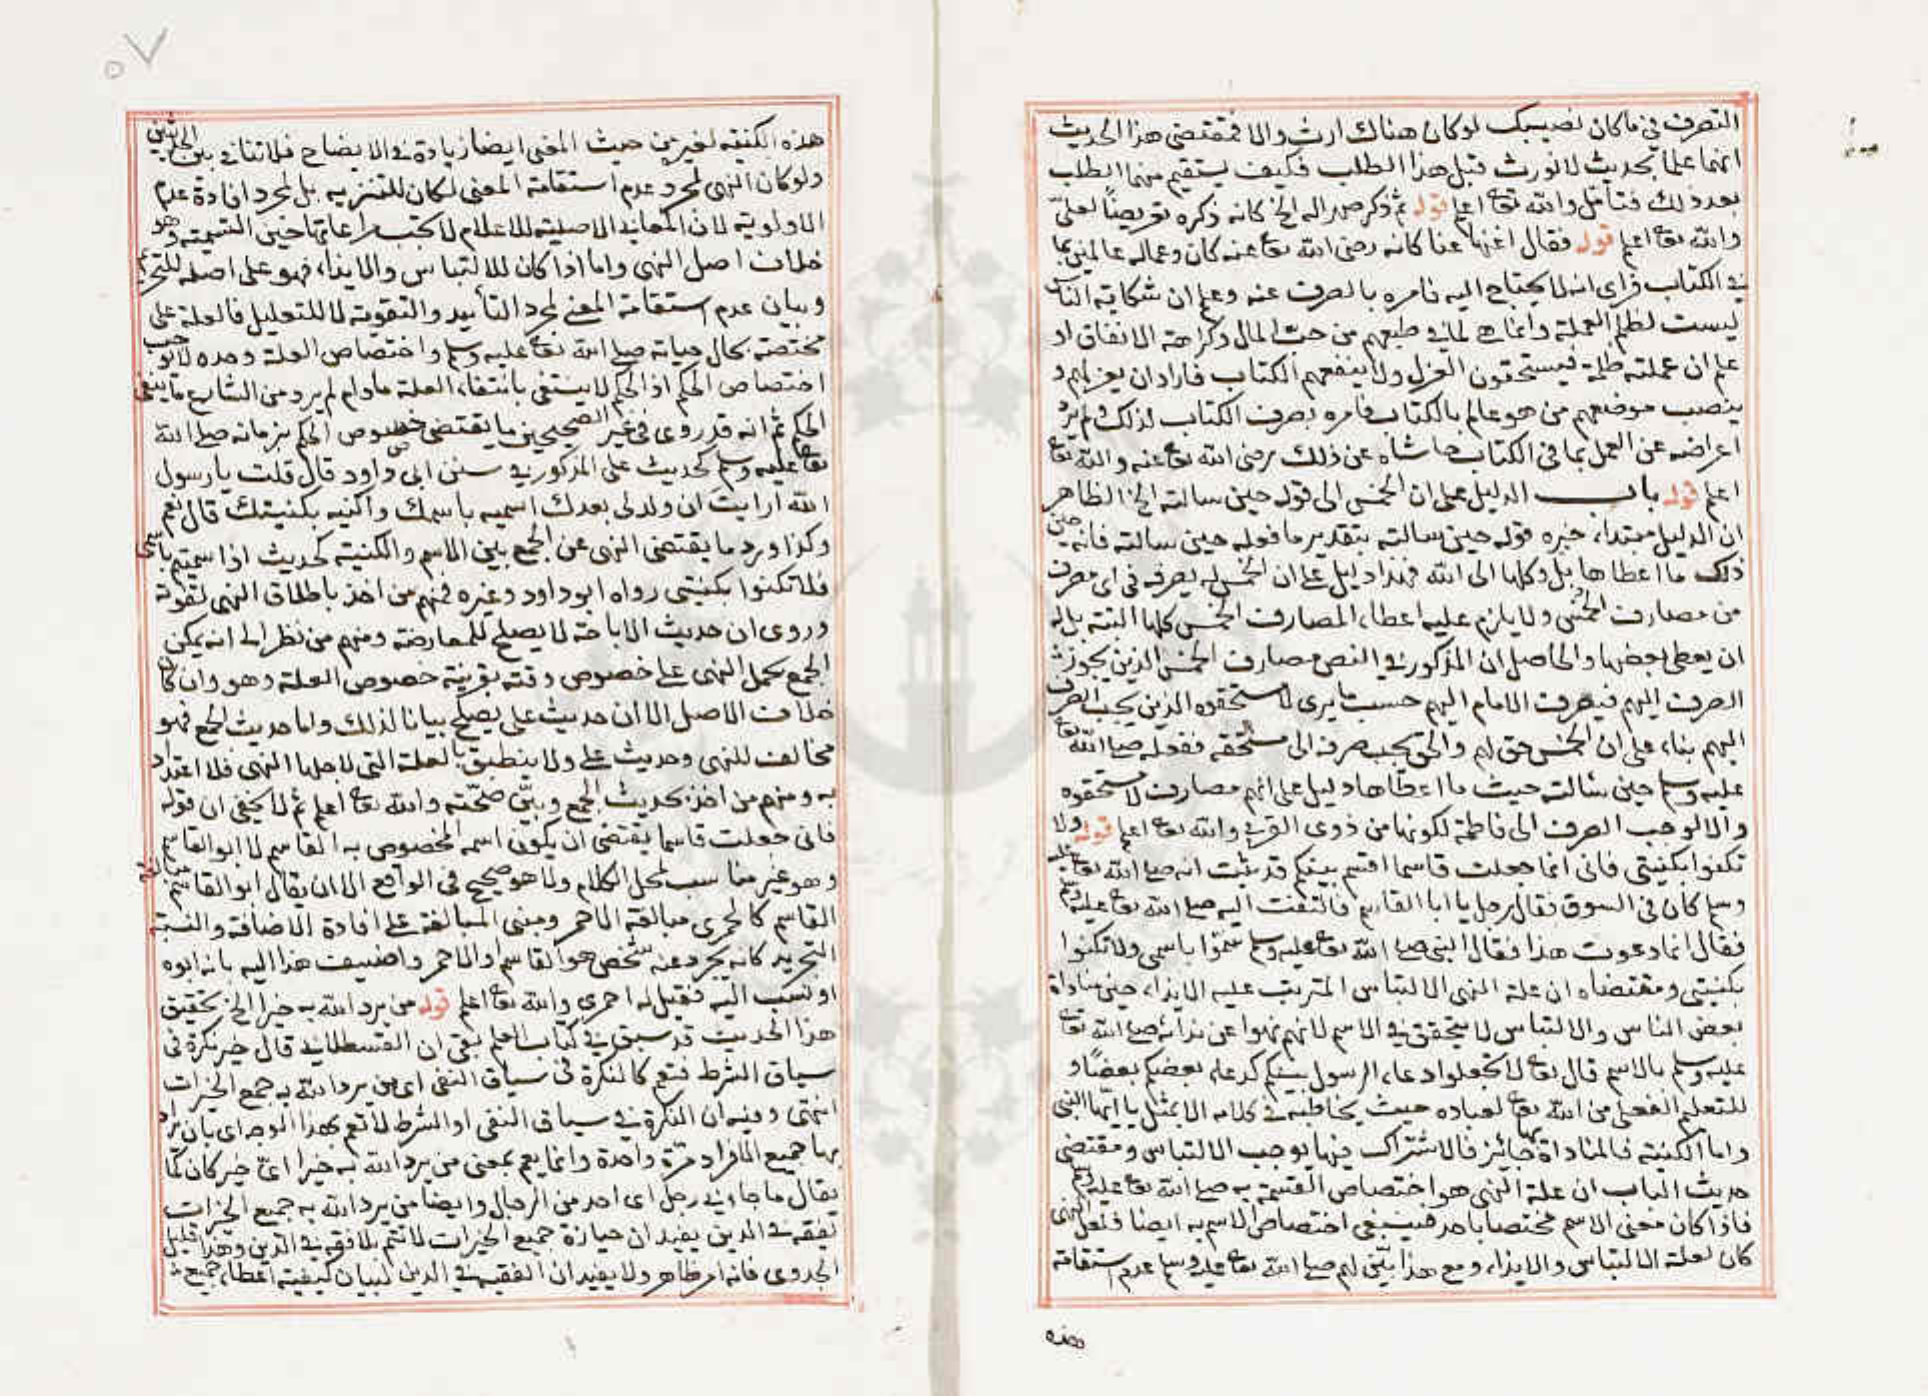 التصرف في ما كان نصيبك لو كان هناك ارث والا فمقتضى هذا الحديث
انهما علما بحديث لا نورث قبل هذا الطلب فكيف يستقيم منهما الطلب
بعد ذلك فتأمل والله تعا اعلم قوله ثم ذكر صهرا له الخ كانه ذكره تعريضا لعلي
والله تعا اعلم قوله فقال اغنها عنا كانه رضى الله تعا عنه كان وعماله عالمين بما
في الكتاب فراى انه لا يحتاج اليه فامره بالصرف عنه وعلم ان شكاية الناس
ليست لظلم العملة وانما هي لما في طبعهم من حب المال وكراهة الانفاق او
علم ان عملته ظلمة فيستحقون العزل ولا ينفعهم الكتاب فاراد ان يعزلهم و
ينصب موضعهم من هو عالم بالكتاب فامره بصرف الكتاب لذلك ولم يرد
اعراضه عن العمل بما في الكتاب حاشاه عن ذلك رضى الله تعا عنه والله تعا
اعلم قوله باب الدليل على ان الخمس الى قوله حين سالته الخ الظاهر
ان الدليل مبتداء خبره قوله حين سالته بتقدير ما فعله حين سالته فانه حين
ذلك ما اعطاها بل وكلها الى الله فهذا دليل على ان الخمس له يصرفه في اى مصرف
من مصارف الخمس ولا يلزم عليه اعطاء المصارف الخمس كلها البتة بل له
ان يعطى بعضها والحاصل ان المذكور في النص مصارف الخمس الذين يجوز
الصرف اليهم فيصرف الامام اليهم حسب ما يرى لا مستحقوه الذين يجب الصرف
اليهم بناء على ان الخمس حق لهم والحق يجب صرفه الى مستحقه ففعله صلى الله تعا
عليه وسلم حين سالته حيث ما اعطاها دليل على انهم مصارف لا مستحقوه
والا لوجب الصرف الى فاطمة لكونها من ذوى القربى والله تعا اعلم قوله ولا
تكنوا بكنيتى فانى انما جعلت قاسما اقسم بينكم قد ثبت انه صلى الله تعا عليه
وسلم كان في السوق فقال رجل يا ابا القاسم فالتفت اليه صلى الله تعا عليه وسلم
فقال انما دعوت هذا فقال النبي صلى الله تعا عليه وسلم سموا باسمى ولا تكنوا
بكنيتى ومقتضاه ان علة النهى الالتباس المترتب عليه الايذاء حين مناداة
بعض الناس والالتباس لا يتحقق في الاسم لانهم نهوا عن ندائه صلى الله تعا
عليه وسلم بالاسم قال تعا لا تجعلوا دعاء الرسول بينكم كدعاء بعضكم بعضا و
للتعليم الفعلى من الله تعا لعباده حيث يخاطبه في كلامه الا بمثل يا ايها النبى
واما الكنية فالمناداة بها جائز فالاشتراك فيها يوجب الالتباس ومقتضى
حديث الباب ان علة النهى هو اختصاص القسمة به صلى الله تعا عليه وسلم
فاذا كان معنى الاسم مختصا باحد فينبغى اختصاص الاسم به ايضا فلعل النهى
كان لعلة الالتباس والايذاء ومع هذا بين لهم صلى الله تعا عليه وسلم عدم استقامة
هذه
٥٧
هذه الكنية لغيره من حيث المعنى ايضا زيادة في الايضاح فلا تنافى بين الحديثين
ولو كان النهى لمجرد عدم استقامة المعنى لكان للتنزيه بل لمجرد افادة عدم
الاولوية لان المعانى الاصلية للاعلام لا يجب مراعاتها حين التسمية وهو
خلاف اصل النهى واما اذا كان للالتباس والايذاء فهو على اصله للتحريم
وبيان عدم استقامة المعنى لمجرد التأييد والتقوية لا للتعليل فالعلة على
مختصة بحال حياته صلى الله تعا عليه وسلم واختصاص العلة وحده لا يوجب
اختصاص الحكم اذ الحكم لا ينتفى بانتفاء العلة مادام لم يرد من الشارع ما ينفى
الحكم ثم انه قد روى في غير الصحيحين ما يقتضى خصوص الحكم بزمانه صلى الله
تعا عليه وسلم كحديث على المذكور في سنن ابى داود قال قلت يا رسول
الله ارايت ان ولد لى بعدك اسميه باسمك واكنيه بكنيتك قال نعم
وكذا ورد ما يقتضى النهى عن الجمع بين الاسم والكنية كحديث اذا سميتم باسمى
فلا تكنوا بكنيتى رواه ابو داود وغيره فمنهم من اخذ باطلاق النهى لقوته
وروى ان حديث الاباحة لا يصلح للمعارضة ومنهم من نظر الى انه يمكن
الجمع بحمل النهى على خصوص وقته بقرينة خصوص العلة وهو وان كان
خلاف الاصل الا ان حديث على يصلح بيانا لذلك واما حديث الجمع فهو
مخالف للنهى وحديث على ولا ينطبق بالعلة التى لاجلها النهى فلا اعتداد
به ومنهم من اخذ بحديث الجمع وبين صحته والله تعا اعلم ثم لا يخفى ان قوله
فانى جعلت قاسما يقتضى ان يكون اسمه المخصوص به القاسم لا ابو القاسم
وهو غير مناسب لمحل الكلام ولا هو صحيح في الواقع الا ان يقال ابو القاسم
القاسم كالحمرى مبالغة الاحمر ومبنى المبالغة على افادة الاضافة والنسبة
التجريد كانه يجرد عنه شخص هو القاسم او الاحمر واضيف هذا اليه بانه ابوه
او نسب اليه فقيل له احمرى والله تعا اعلم قوله من يرد الله به خيرا الخ تحقيق
هذا الحديث قد سبق في كتاب العلم بقى ان القسطلانى قال خير نكرة في
سياق الشرط فتعم كالنكرة في سياق النفى اى من يرد الله به جميع الخيرات
انتهى وفيه ان النكرة في سياق النفى او الشرط لا تعم بهذا الوجه اى بان يراد
بها جميع الافراد مرة واحدة وانما يعم بمعنى من يرد الله به خيرا اى خير كان كما
يقال ما جاءنى رجل اى احد من الرجال وايضا من يرد الله به جميع الخيرات
تفقه في الدين يفيد ان حيازة جميع الخيرات لا تتم بلا فقه في الدين وهذا قليل
الجدوى فانه امر ظاهر ولا يفيد ان الفقيه في الدين لبيان كيفية اعطاء جميع